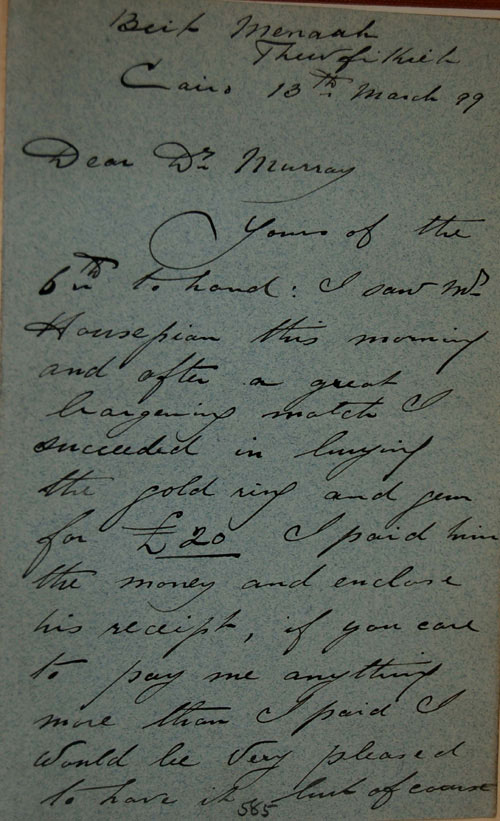 Beit Menaah
Thewfikieh
Cairo 13th March 99
Dear Dr Murray
Yours of the
6th to hand: I saw Mr
Housepian this morning
and after a great
bargening match I
succeeded in buying
the gold ring and gem
for £20 I paid him
the money and enclose
his receipt, if you care
to pay me anything
more than I paid I
would be very pleased
to have it but of course
585